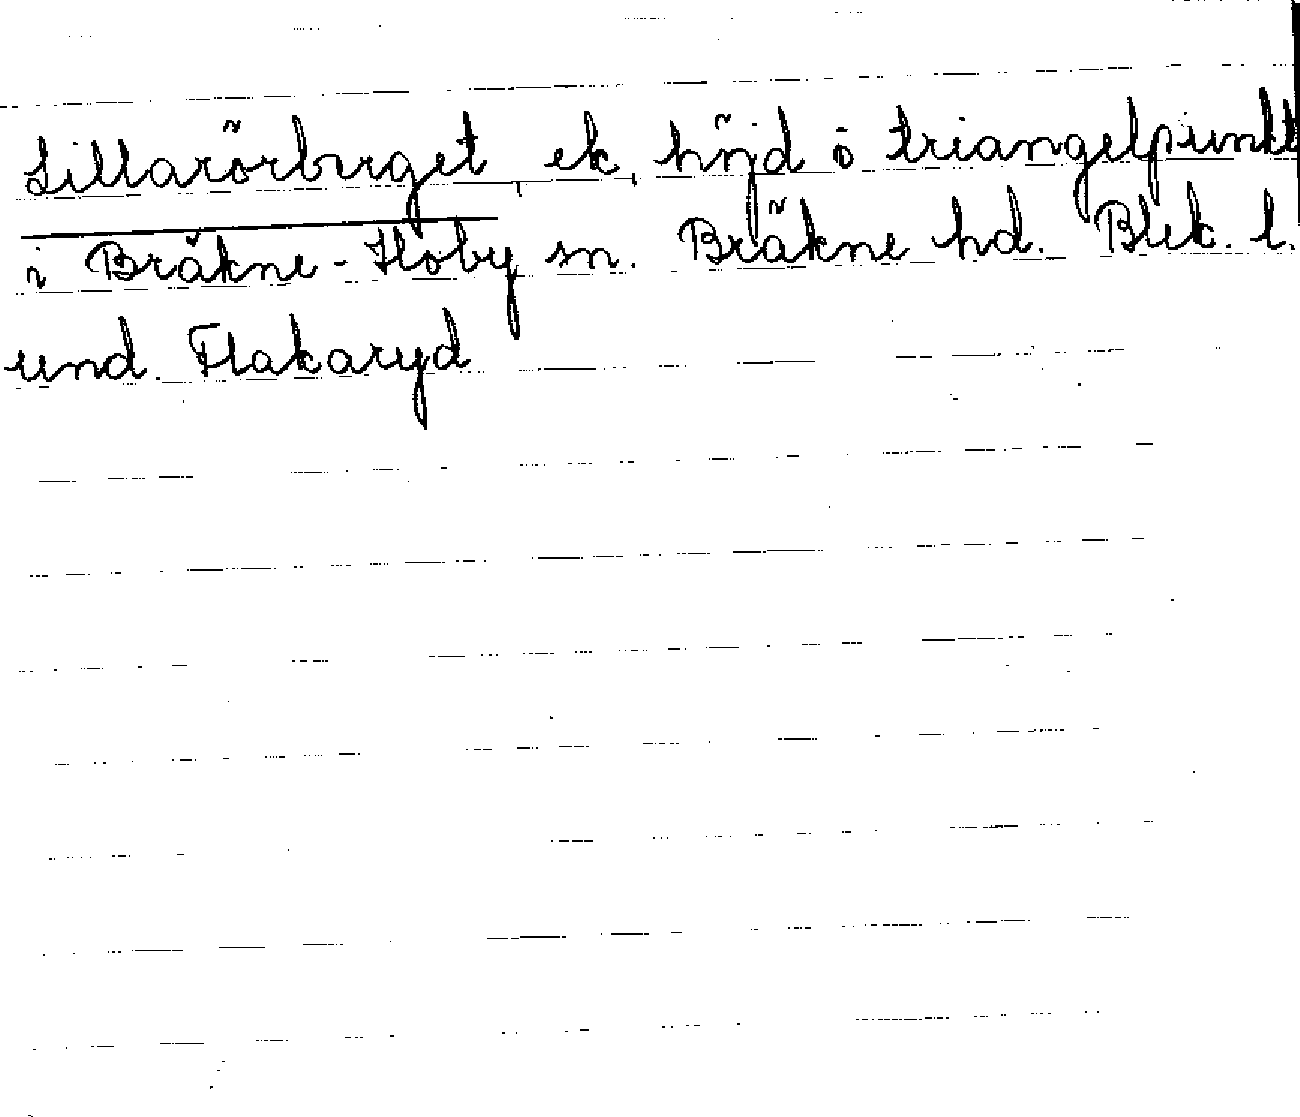 Lillarörberget ek, höjd o triangelpunkt
i Bräkne-Hoby sn. Bräkne hd. Blek. l.
und. Flakaryd